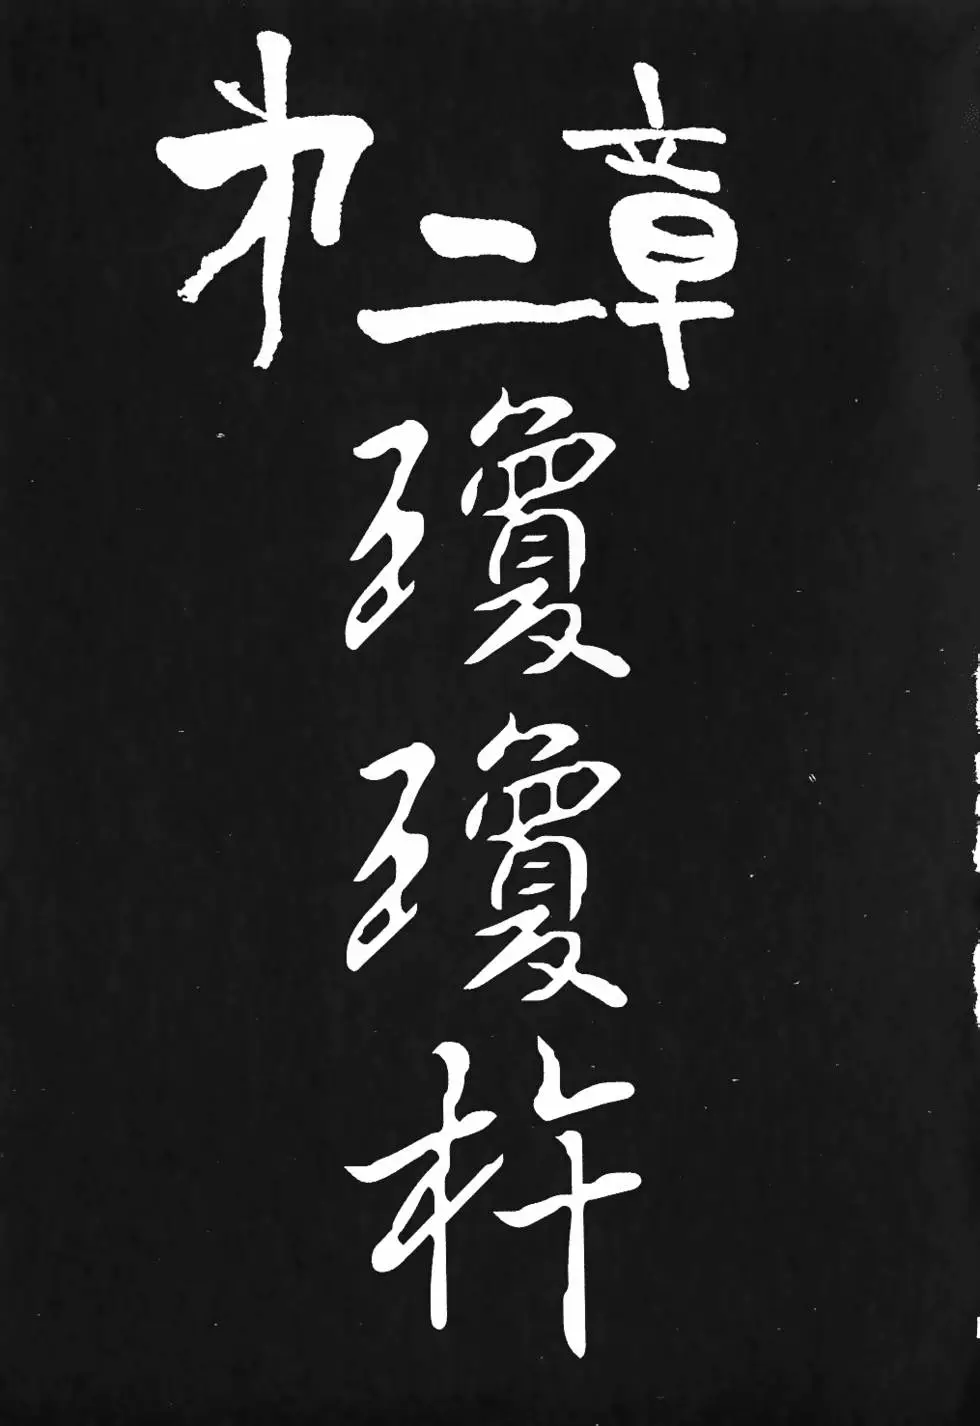 第二章
瓊瓊杵